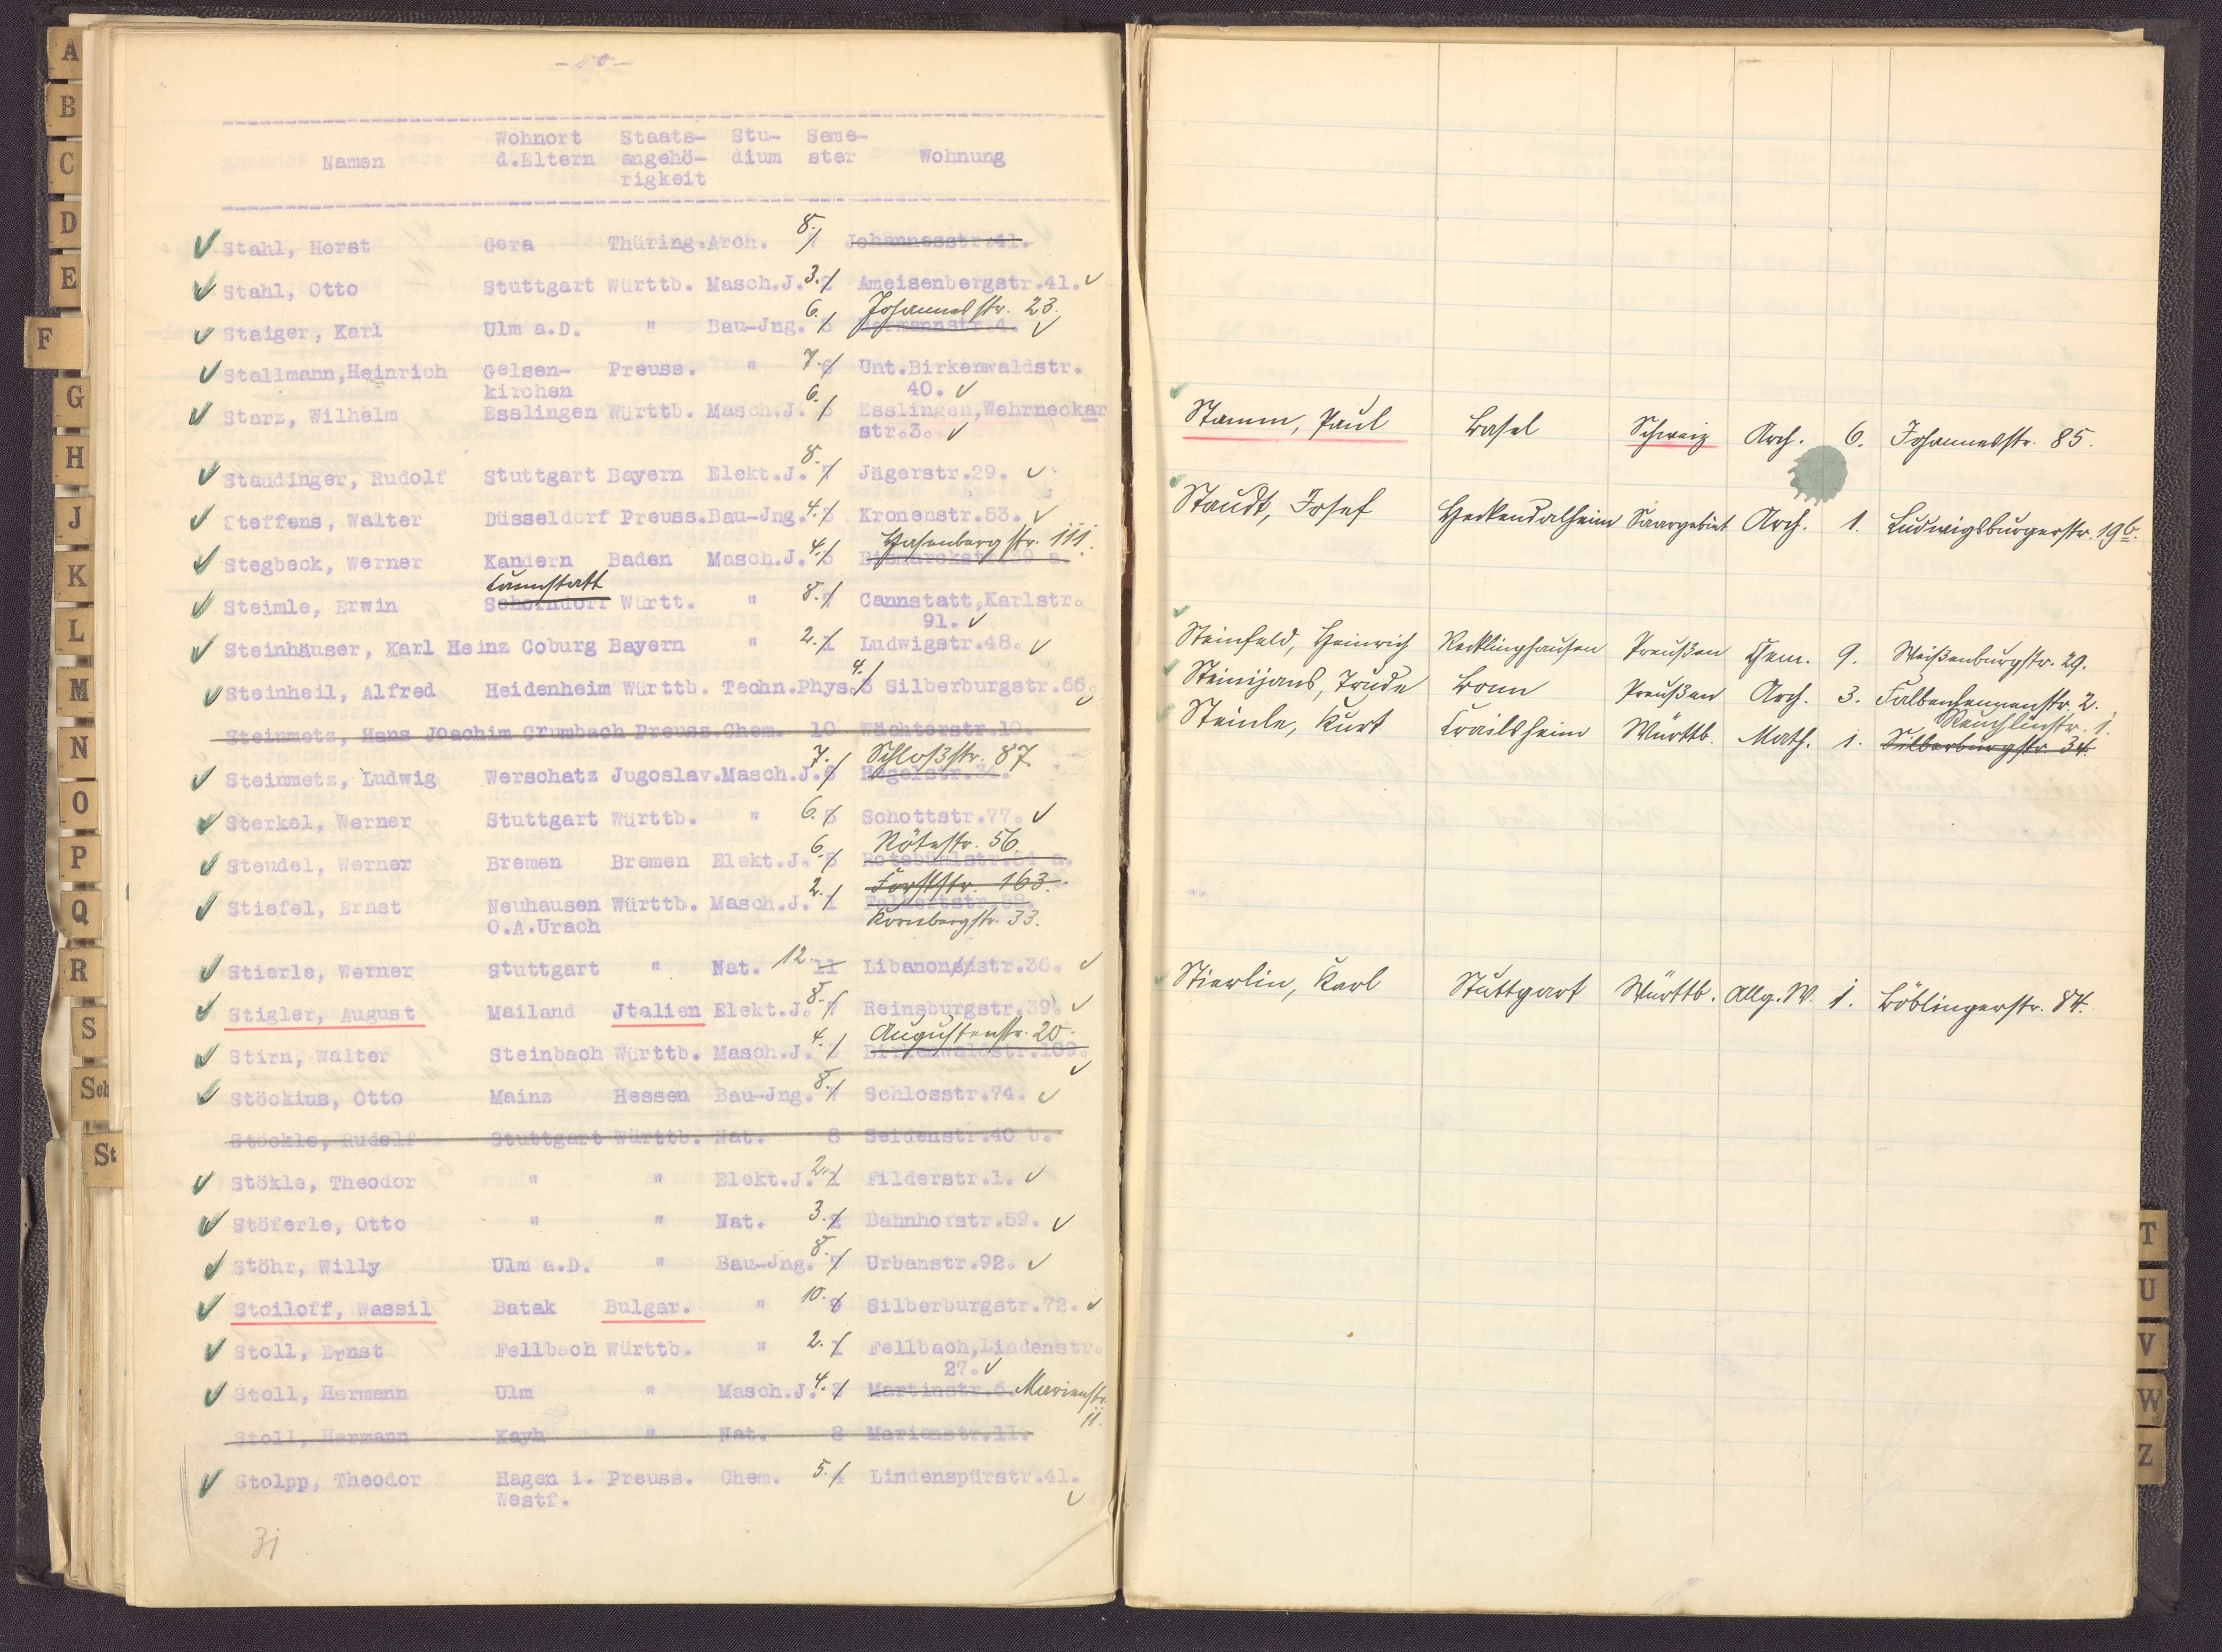 - 80 -
Wohnort Staats- Stu- Seme-
Namen d.Eltern angehö- dium ster Wohnung
rigkeit
Stahl, Horst Gera Thüring.Arch. 8. 7 Johannesstr.41.
Stahl, Otto Stuttgart Württb. Masch.J. 3. 2 Ameisenbergstr.41.
Johannesstr. 23.
Staiger, Karl Ulm a.D. " Bau-Jng. 6. 5
Stallmann,Heinrich Gelsen- Preuss. " 7. 6 Unt.Birkenwaldstr.
kirchen 40.
Starz, Wilhelm Esslingen Württb. Masch.J. 6. 5 Esslingen,Wehrneckar
str.3.
Staudinger, Rudolf Stuttgart Bayern Elekt.J. 8. 7 Jägerstr.29.
Steffens, Walter Düsseldorf Preuss.Bau-Jng. 4. 3 Kronenstr.53.
Hasenbergstr. 111.
Stegbeck, Werner Kandern Baden Masch.J. 4. 3 Bismarckstr.39 a.
Cannstatt
Steimle, Erwin Schorndorf Württ. " 8. 7 Cannstatt,Karlstr.
91.
Steinhäuser, Karl Heinz Coburg Bayern " 2. 1 Ludwigstr.48.
Steinheil, Alfred Heidenheim Württb. Techn.Phys. 4. 3 Silberburgstr.66.
Steinmetz, Hans Joachim Crumbach Preuss.Chem. 10 Wächterstr.10.
Schloßstr. 87
Steinmetz, Ludwig Werschatz Jugoslav.Masch.J. 7. 6 Hegelstr.
Sterkel, Werner Stuttgart Württb. " 6. 5 Schottstr.77.
Rötestr. 56
Steudel, Werner Bremen Bremen Elekt.J. 6. 5 Rotebühlstr.54 a.
Forststr. 163.
Stiefel, Ernst Neuhausen Württb. Masch.J. 2. 1
O.A.Urach Kornbergstr. 33.
Stierle, Werner Stuttgart " Nat. 12. 11 Libanonstr.36.
Stigler, August Mailand Jtalien Elekt.J. 8. 7 Reinsburgstr.39.
Augustenstr. 20.
Stirn, Walter Steinbach Württb. Masch.J. 4. Birkenwaldstr.109.
Stöckius, Otto Mainz Hessen Bau-Jng. 8. 7 Schlosstr.74.
Stöckle, Rudolf Stuttgart Württb. Nat. 8 Seidenstr.40 b.
Stökle, Theodor " " Elekt.J. 2. 1 Filderstr.1.
Stöferle, Otto " " Nat. 3. 2 Bahnhofstr.59.
Stöhr, Willy Ulm a.D. " Bau-Jng. 8. 7 Urbanstr.92.
Stoiloff, Wassil Batak Bulgar. " 10. 9 Silberburgstr.72.
Stoll, Ernst Fellbach Württb. " 2. 1 Fellbach,Lindenstr.
27.
Stoll, Hermann Ulm " Masch.J. 4. 3 Martinstr.6. Marienstr.
11.
Stoll, Hermann Kayh " Nat. 8 Marienstr.11.
Stolpp, Theodor Hagen i. Preuss. Chem. 5. 4 Lindenspürstr.41.
Westf.
31
Stamm, Paul Basel Schweiz Arch. 6. Johannesstr. 85.
Staudt, Josef Heckendalheim Saargebiet Arch. 1. Ludwigsburgerstr. 196.
Steinfeld, Heinrich Recklinghausen Preußen Chem. 9. Weißenburgstr. 29.
Steinijans, Trude Bonn Preußen Arch. 3. Falbenhennenstr. 2.
Reuchlinstr. 1.
Steinle, Kurt Crailsheim Württb. Math. 1. Silberburgstr. 34.
Stierlin, Karl Stuttgart Württb. Allg. W. 1. Böblingerstr. 84.
A
B
C
D
E
F
G
H
J
K
L
M
N
O
P
Q
R
S
Sch
St
T
U
V
W
Z